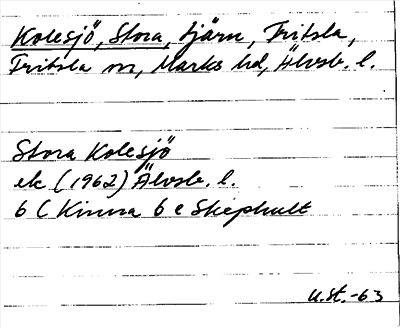 Kolesjö, Stora, tjärn, Fritsla,
Fritsla sn, Marks hd, Älvsb. l.
Stora Kolesjö
ek (1962) Älvsb. l.
6 C Kinna 6 e Skephult
u.st.-63